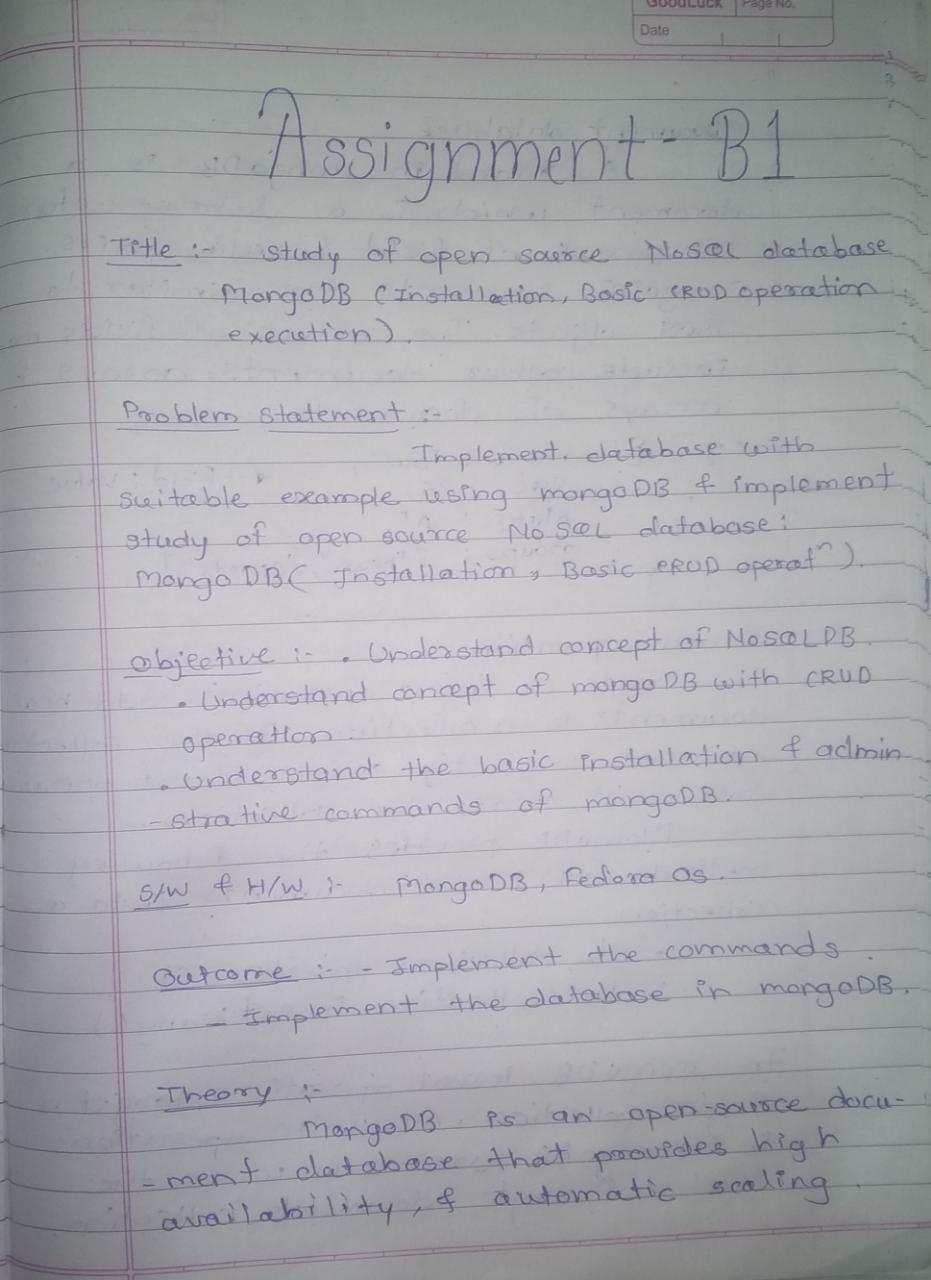 GOODLUCK Page No.
Date
Assignment - B1
Title :- study of open source NoSQL database
MongoDB (Installation, Basic CRUD operation
execution).
Problem statement :-
Implement database with
suitable example using mongoDB & implement
study of open source NoSQL database:
MongoDB( Installation, Basic CRUD operatⁿ).
Objective :- . Understand concept of NoSQLDB.
. Understand concept of mongoDB with CRUD
operation
. Understand the basic installation & admin
- strative commands of mongoDB.
S/W & H/W :- MongoDB, Fedora OS.
Outcome :- - Implement the commands.
- Implement the database in mongoDB.
Theory :-
MongoDB is an open-source docu-
- ment database that provides high
availability, & automatic scaling.